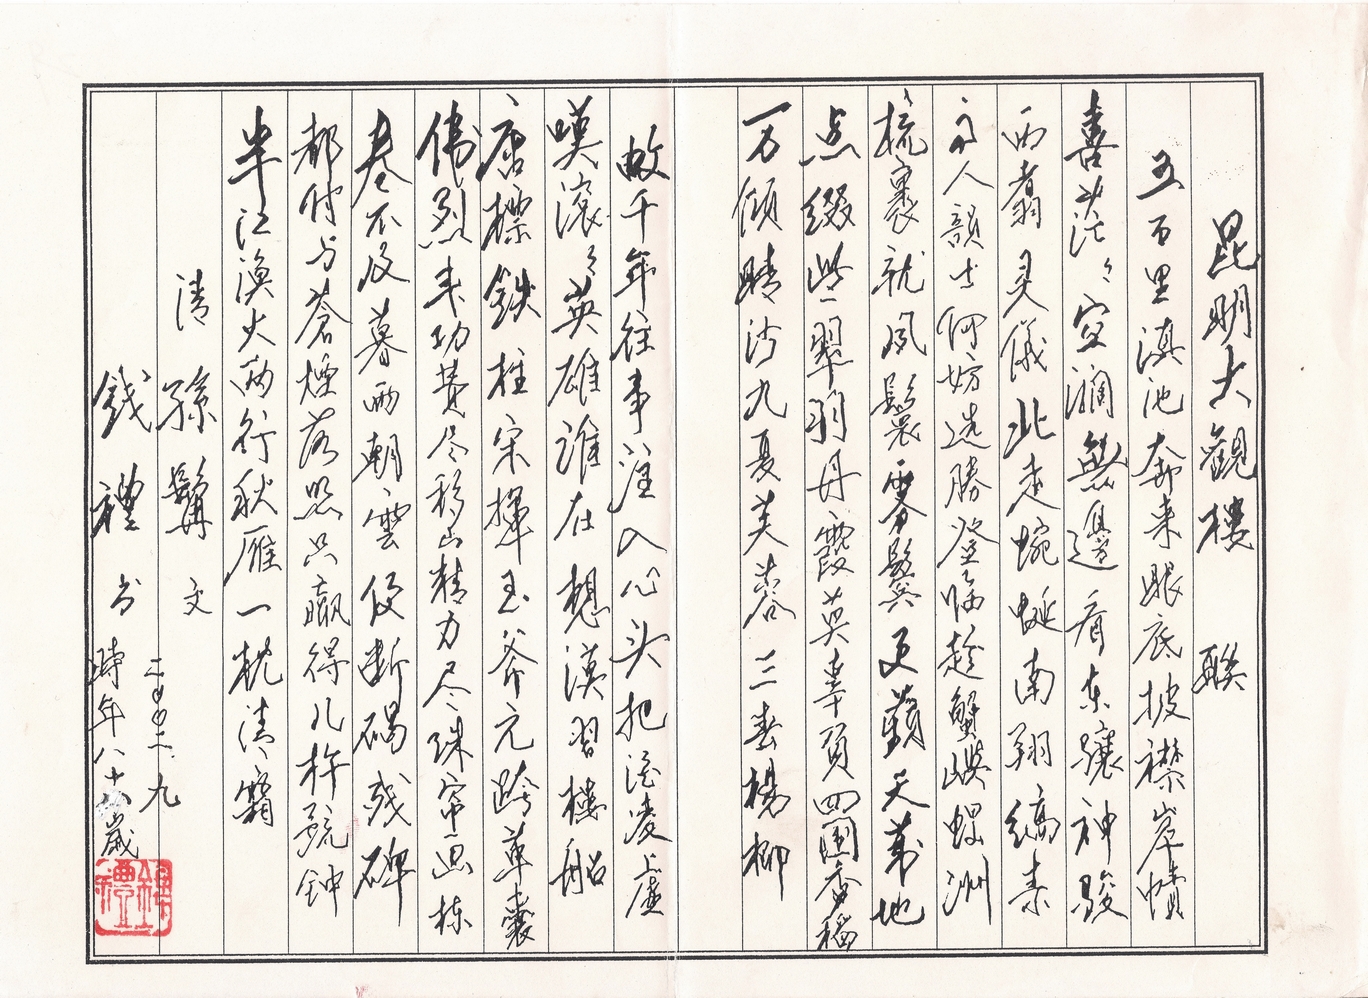 昆明大觀樓 聯
五百里滇池奔来眼底披襟岸幘
喜茫々空濶無邊看东驤神駿
西翥灵儀北走蜿蜒南翔縞素
高人韻士何妨选勝登临趁蟹嶼螺洲
梳裹就風鬟雾鬢更蘋天葦地
点缀些翠羽丹霞莫辜負四圍香稻
万傾晴沙九夏芙蓉三春楊柳
数千年往事注入心头把酒凌虛
嘆滚々英雄誰在想漢習樓船
唐標鉄柱宋揮玉斧元跨革囊
偉烈丰功费尽移山精力尽珠帘画栋
卷不及暮雨朝雲便断碣残碑
都付与蒼煙落照只贏得几杵疏钟
半江漁火两行秋雁一枕清霜
清 孫髯 文
二〇〇二.九
錢禮 书 時年八十六歲